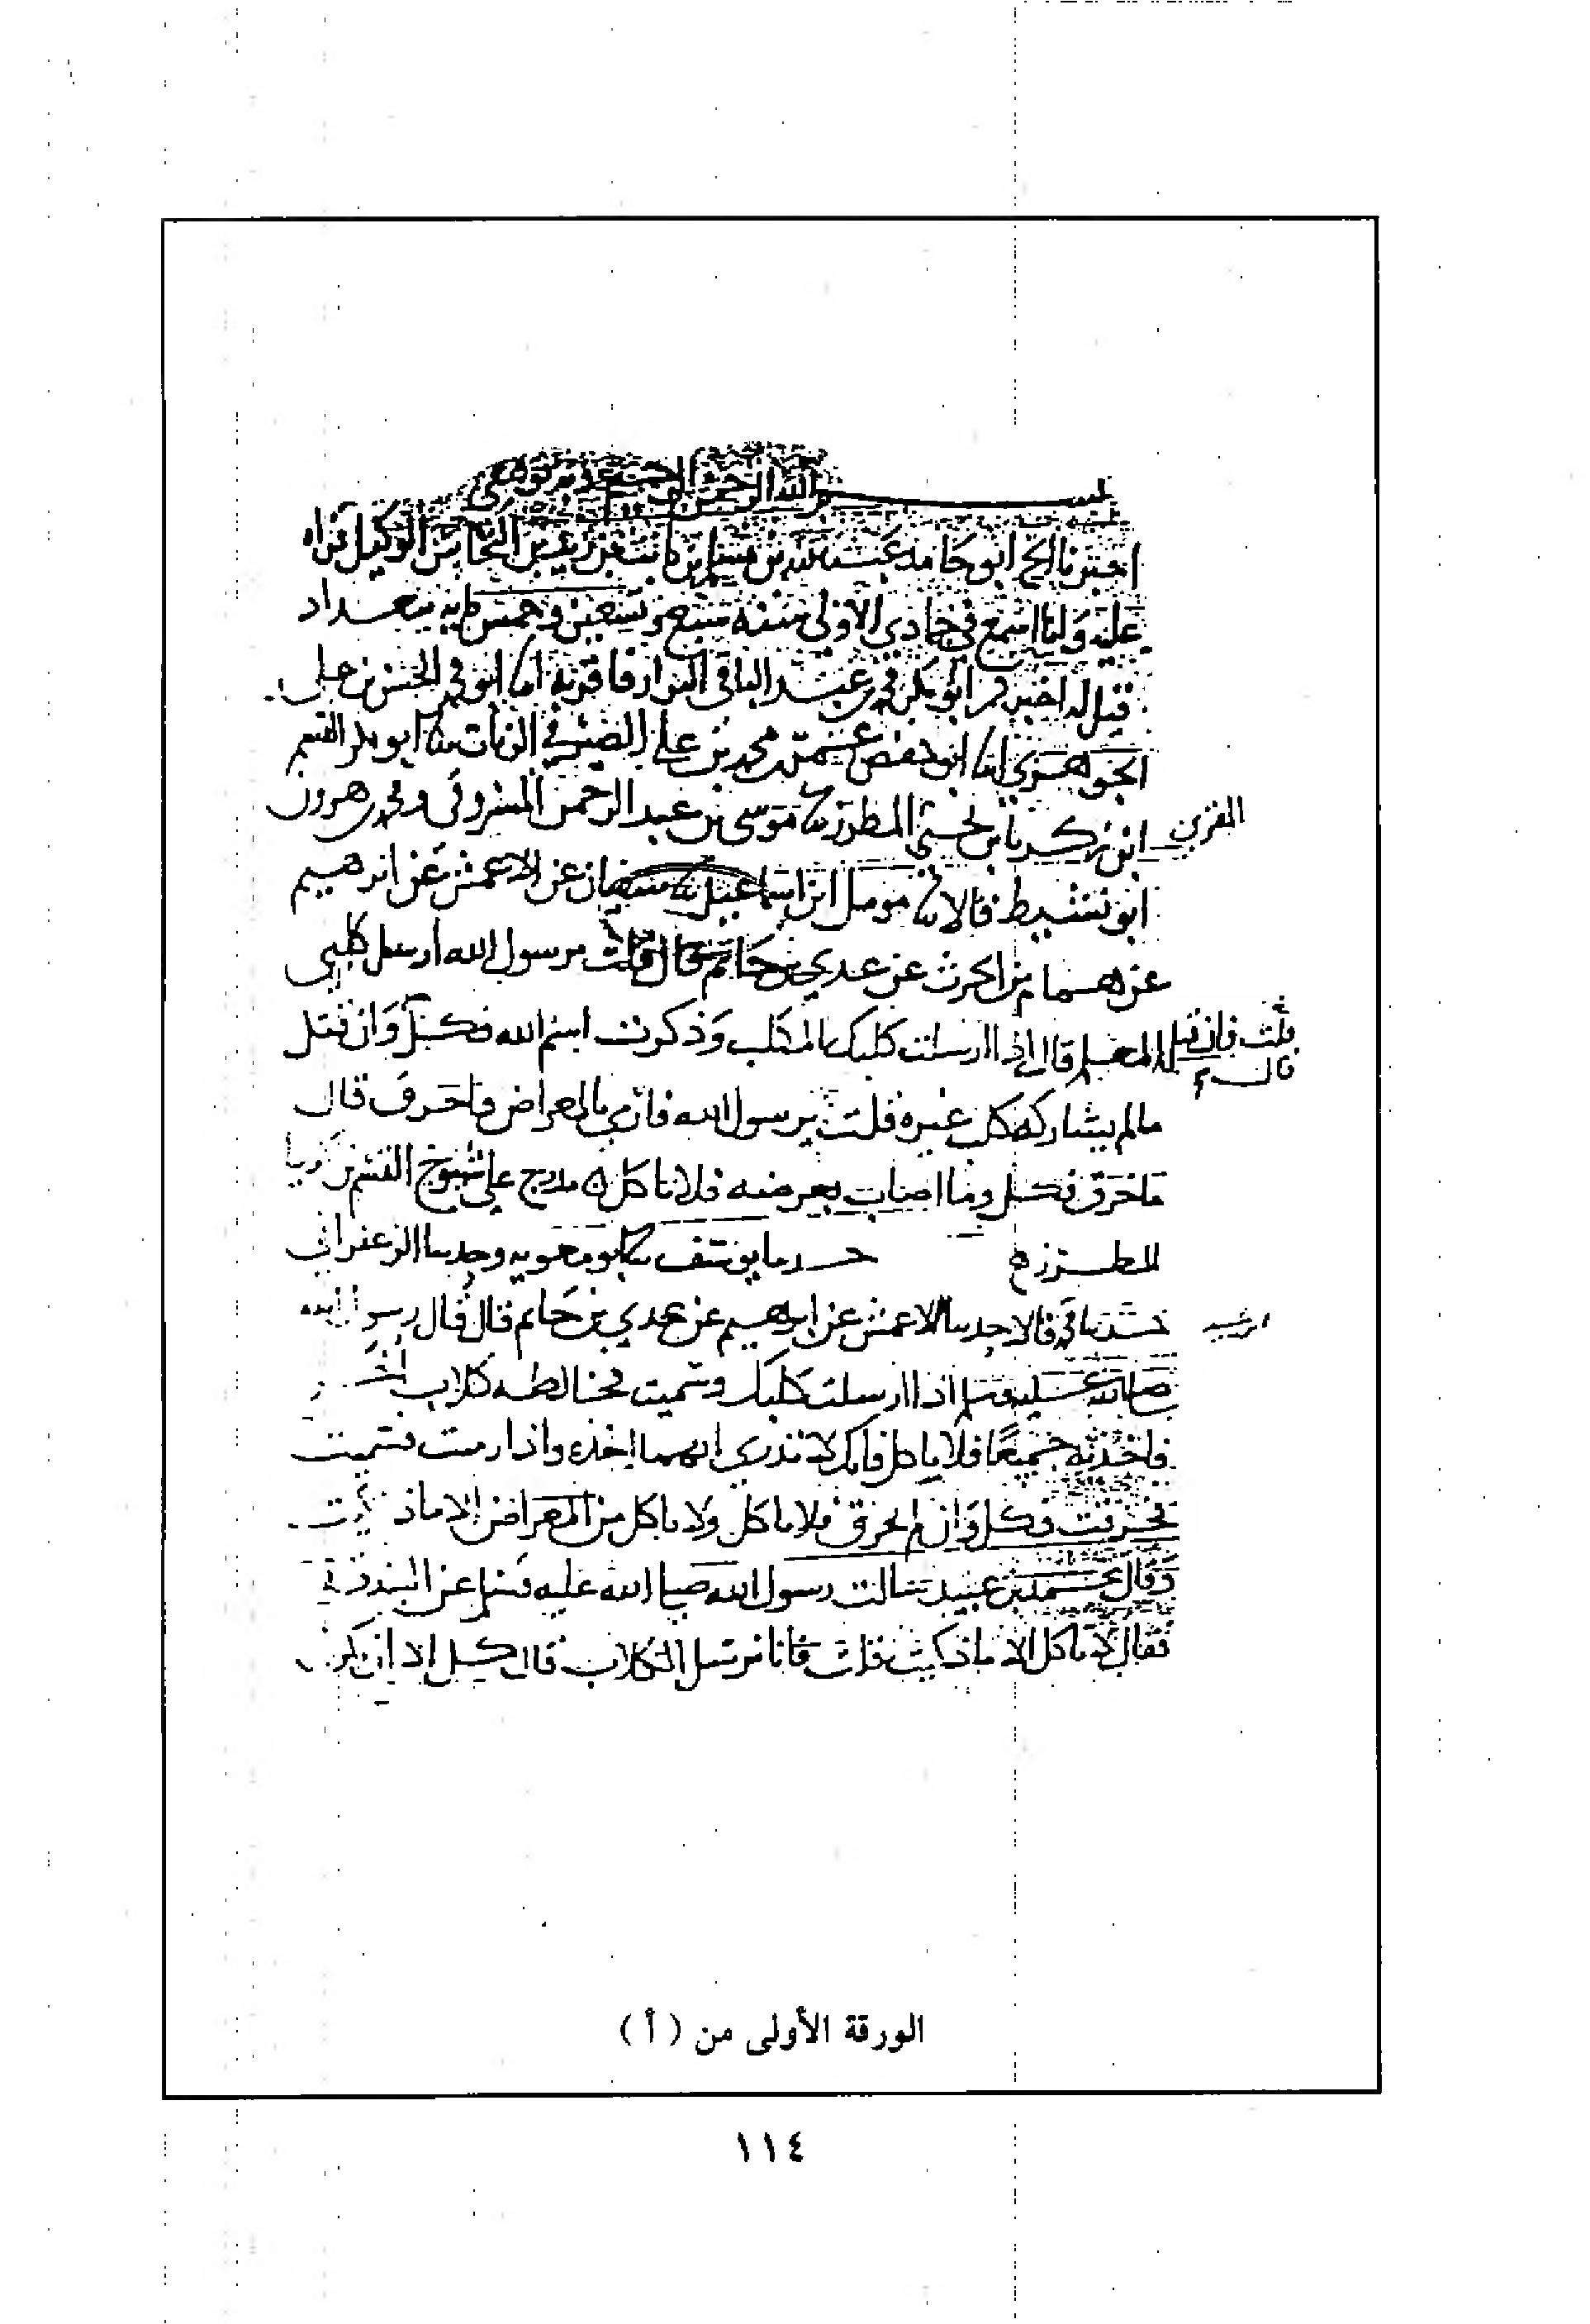 بسم الله الرحمن الرحيم
اخبرنا الشيخ ابو حامد عبد الله بن مسلم بن ثابت بن زيد بن النحاس الوكيل قراه
عليه وانا اسمع في جمادي الاولى سنه سبع وتسعين وخمس مايه ببغداد
قيل له اخبركم ابو بكر محمد بن عبد الباقي البزار فاقر به انا ابو محمد الحسن بن علي
الجوهري انا ابو حفص عمر بن محمد بن علي الصيرفي الزيات ثنا ابو بكر القسم
المقري
ابن زكريا بن يحيى المطرز ثنا موسى بن عبد الرحمن المسروقي ومحمد بن هرون
ابو نشيط قالا ثنا مومل ابن اسماعيل ثنا سفيان عن الاعمش عن ابرهيم
عن همام بن الحرث عن عدي بن حاتم قال قلت يرسول الله ارسل كلبي
المعلم قال اذا ارسلت كلبك المكلب وذكرت اسم الله فكل وان قتل
قلت فان قتل
قال
مالم يشاركه كلب غيره قلت يرسول الله فارمي بالمعراض فاخرق قال
ماخرق فكل وما اصاب بعرضه فلا تاكل مدرج على شيوخ القسم بن زكريا
المطرز حدثنا يوسف ثنا ابو معويه وحدثنا الزعفراني
حدثنا محمد قالا حدثنا الاعمش عن ابرهيم عن عدي بن حاتم قال قال رسول الله
صلى الله عليه وسلم اذا ارسلت كلبك وسميت فخالطه كلاب اخر
فاخذته جميعا فلا تاكل فانك لا تدري ايهما اخذه واذا رميت فسميت
فخرقت فكل وان لم يخرق فلا تاكل ولا تاكل من المعراض الا ما ذكيت
وقال محمد بن عبيد سالت رسول الله صلى الله عليه وسلم عن البندقه
فقال لا تاكل الا ما ذكيت قلت فانا نرسل الكلاب قال كل الا ان
الورقة الأولى من ( أ )
١١٤